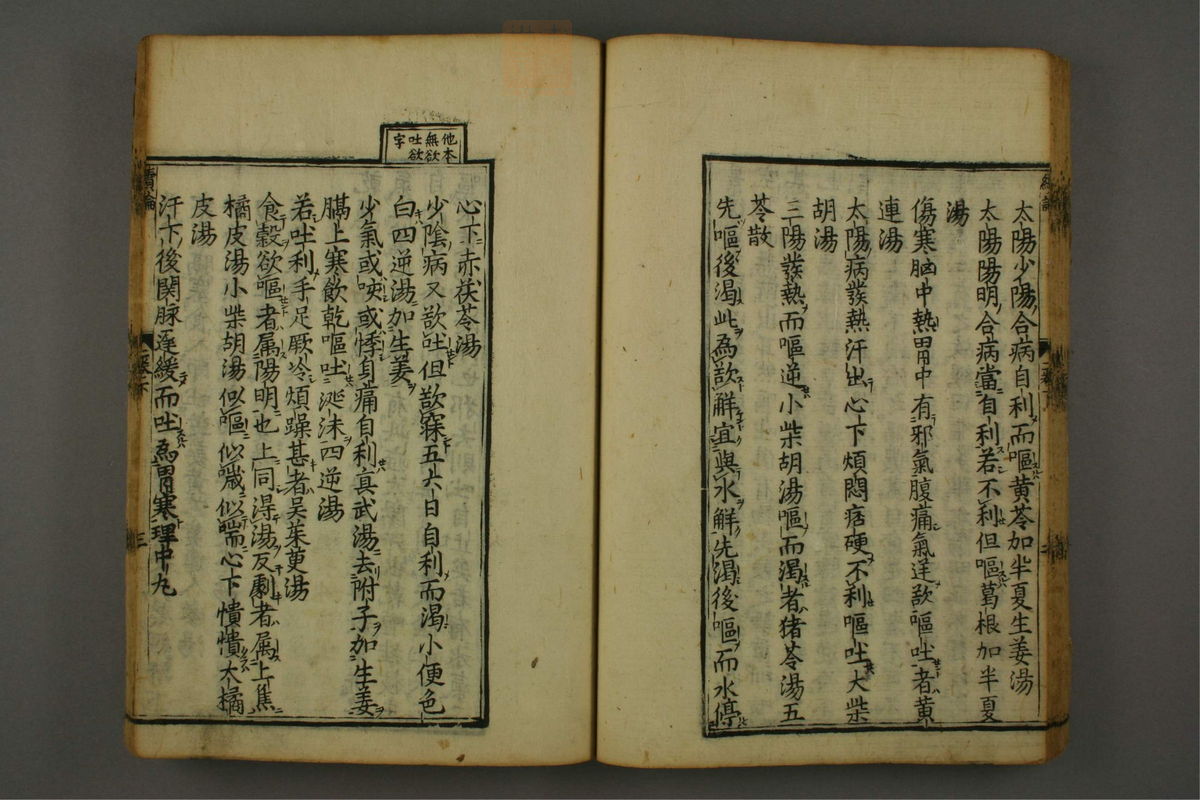 太陽少陽合病自利而嘔黄芩加半夏生姜湯
太陽陽明合病當自利若不利但嘔葛根加半夏
湯
傷寒胸中熱胃中有邪氣腹痛氣逆欲嘔吐者黄
連湯
太陽病發熱汗出心下煩悶痞硬不利嘔吐大柴
胡湯
三陽發熱而嘔逆小柴胡湯嘔而渴者猪苓湯五
苓散
先嘔後渴此為欲解宜與水解先渴後嘔而水停
他本
無欲
吐欲
字
心下赤茯苓湯
少陰病又欲吐但欲寐五六日自利而渴小便色
白四逆湯加生姜
少氣或咳或悸身痛自利真武湯去附子加生姜
膈上寒飲乾嘔吐涎沫四逆湯
若吐利手足厥冷煩躁甚者吴茱萸湯
食穀欲嘔者属陽明也上同淂湯反劇者属上焦
橘皮湯小柴胡湯似嘔似噦似喘心下憒憒大橘
皮湯
汗下後関脉遲緩而吐為胃寒理中丸
三